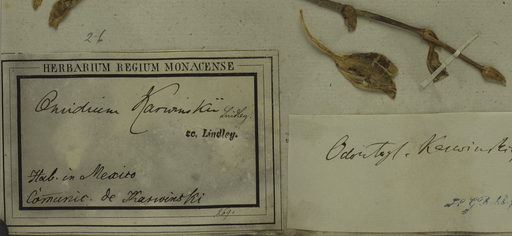 26
HERBARIUM REGIUM MONACENSE
Oncidium Karwinskii Lindley.
sc. Lindley.
Hab. in Mexico
Comunic. de Karwinski
Odontogl. Karwinskii